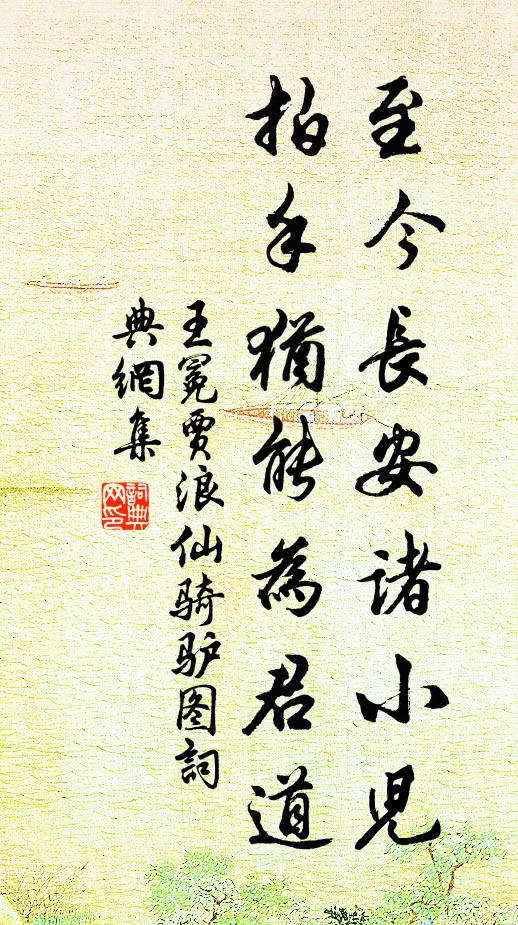 至今長安諸小兒
拍手猶能為君道
王冕贾浪仙骑驴图詞
典網集
詞典
网印